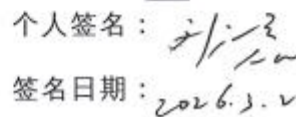 个人签名：刘
签名日期：2026.3.2